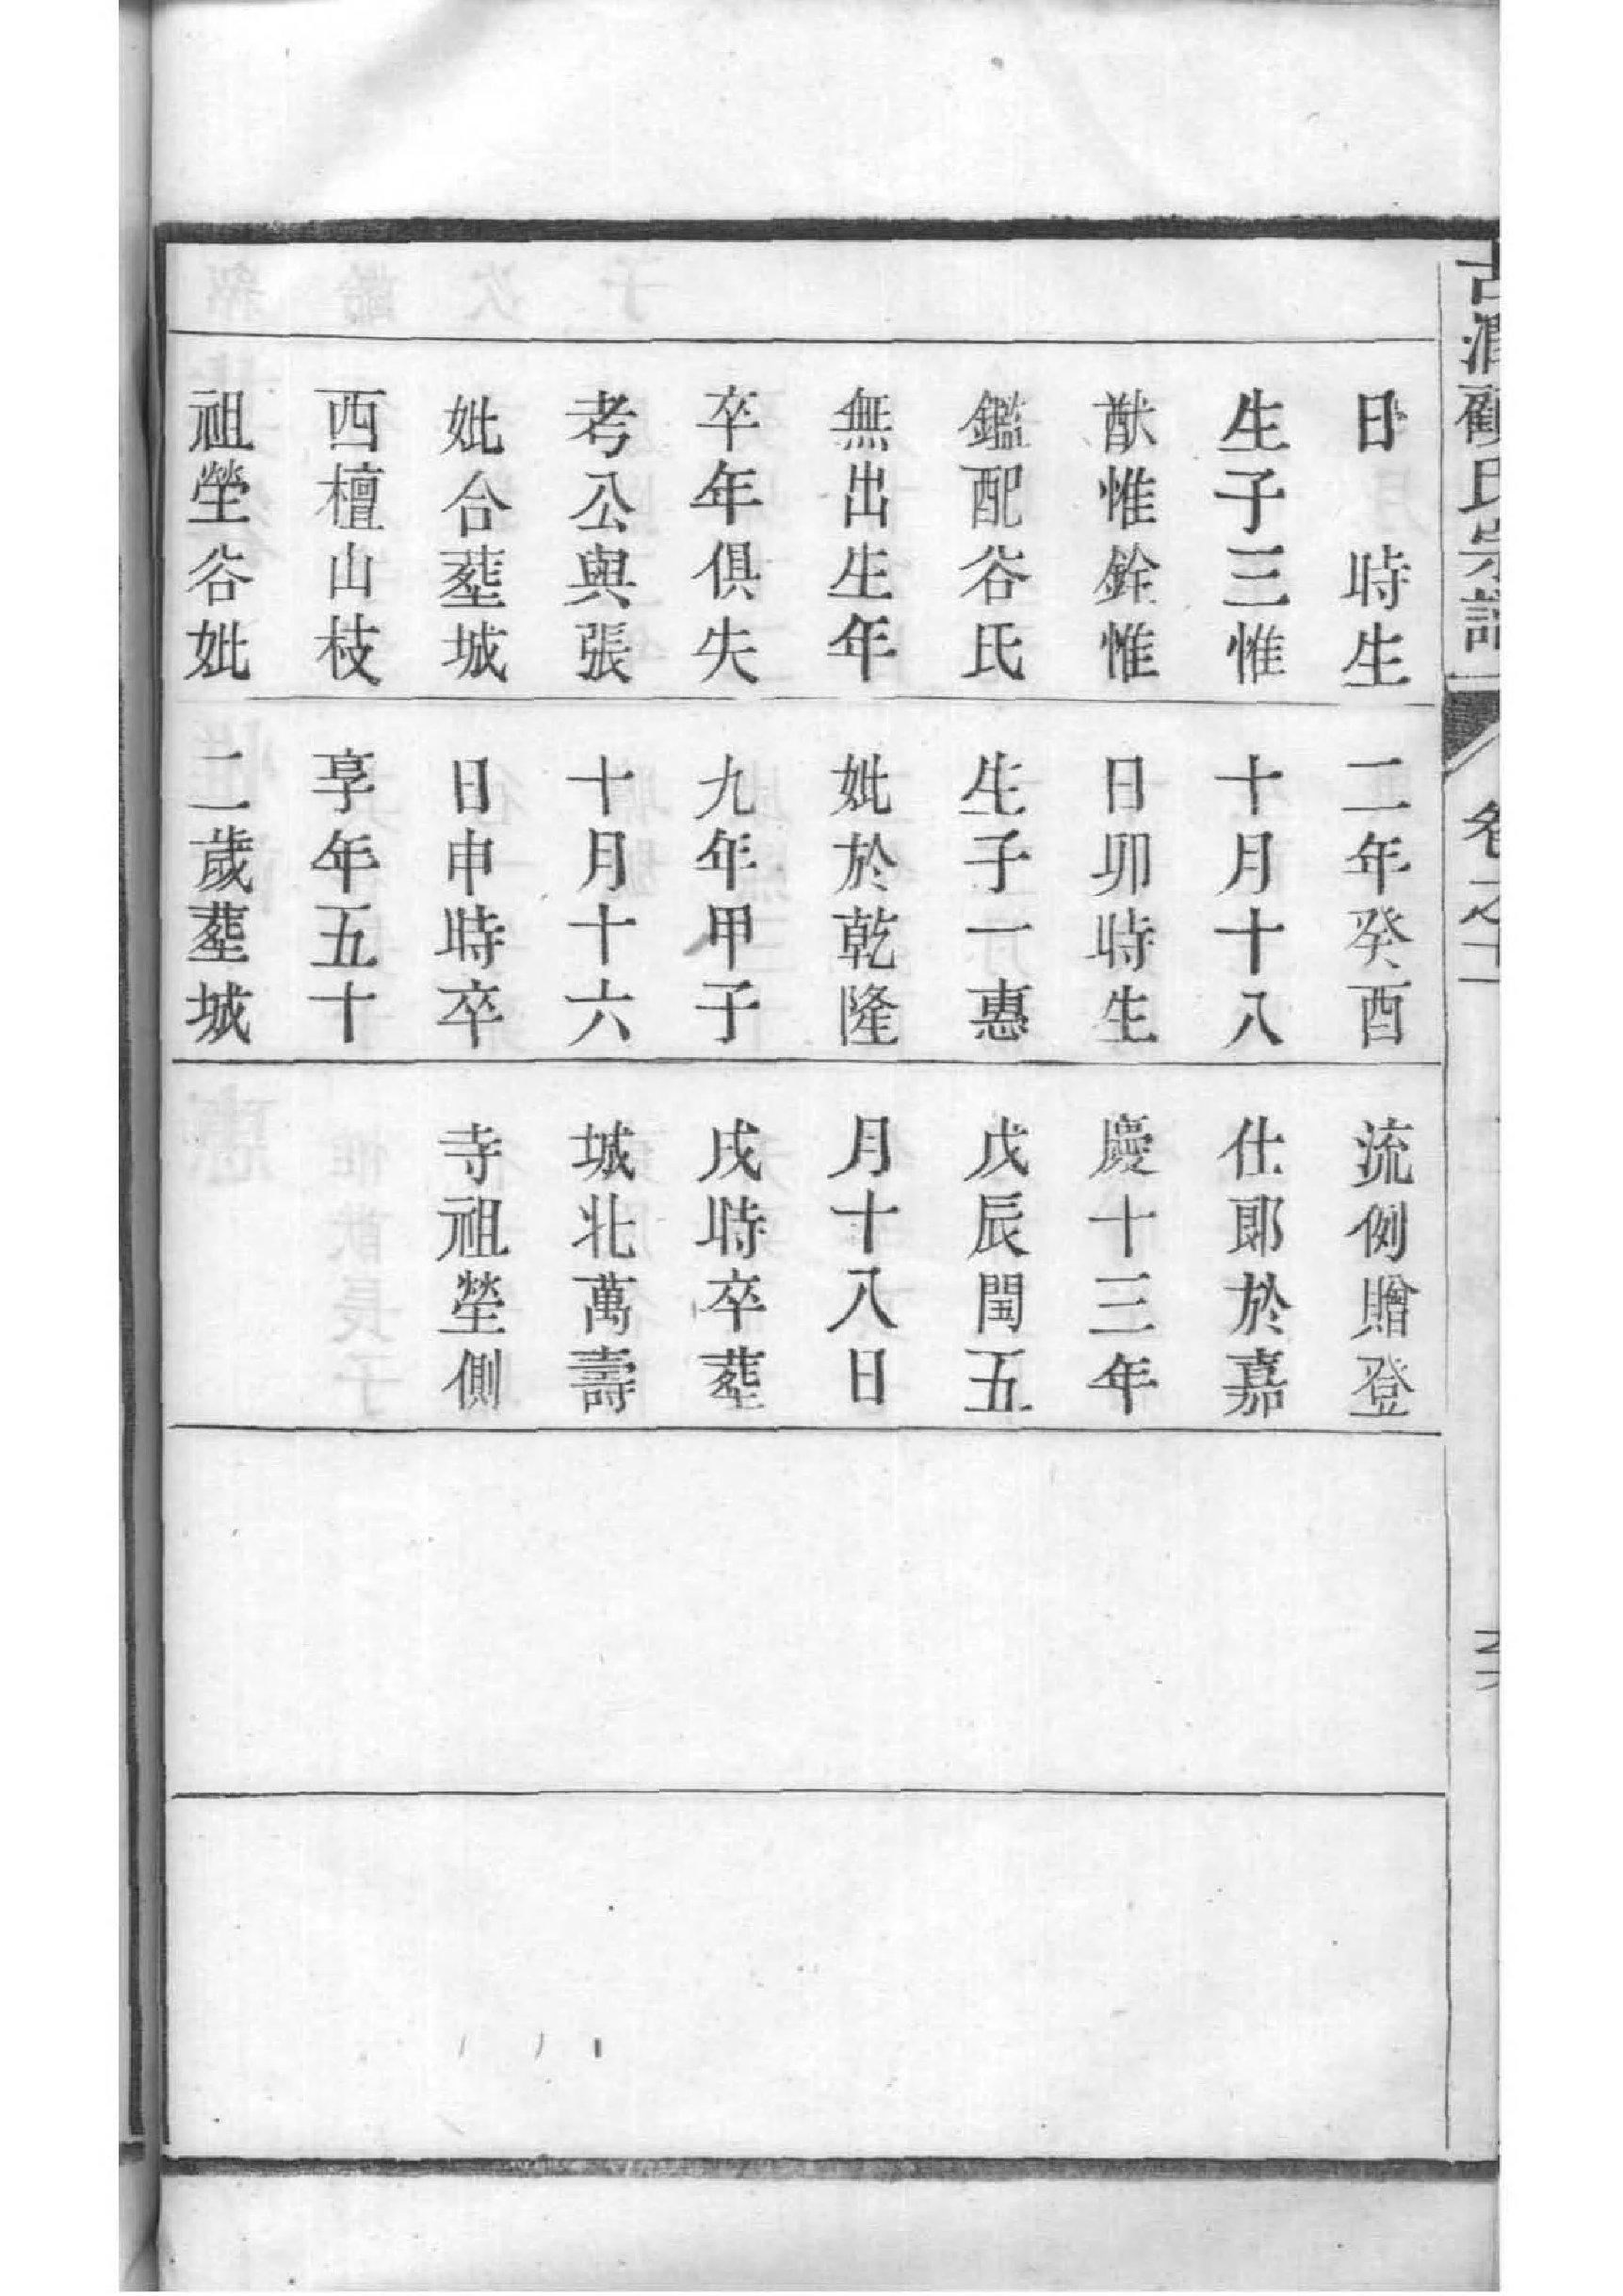 古潤顧氏宗譜
卷之二
六
日　時生
生子三惟
猷惟銓惟
鑑配谷氏
無出生年
卒年俱失
考公與張
妣合塟城
西檀山枝
祖塋谷妣
二年癸酉
十月十八
日卯時生
生子一惠
妣於乾隆
九年甲子
十月十六
日申時卒
享年五十
二歲塟城
流例贈登
仕郎於嘉
慶十三年
戊辰閏五
月十八日
戌時卒塟
城北萬壽
寺祖塋側